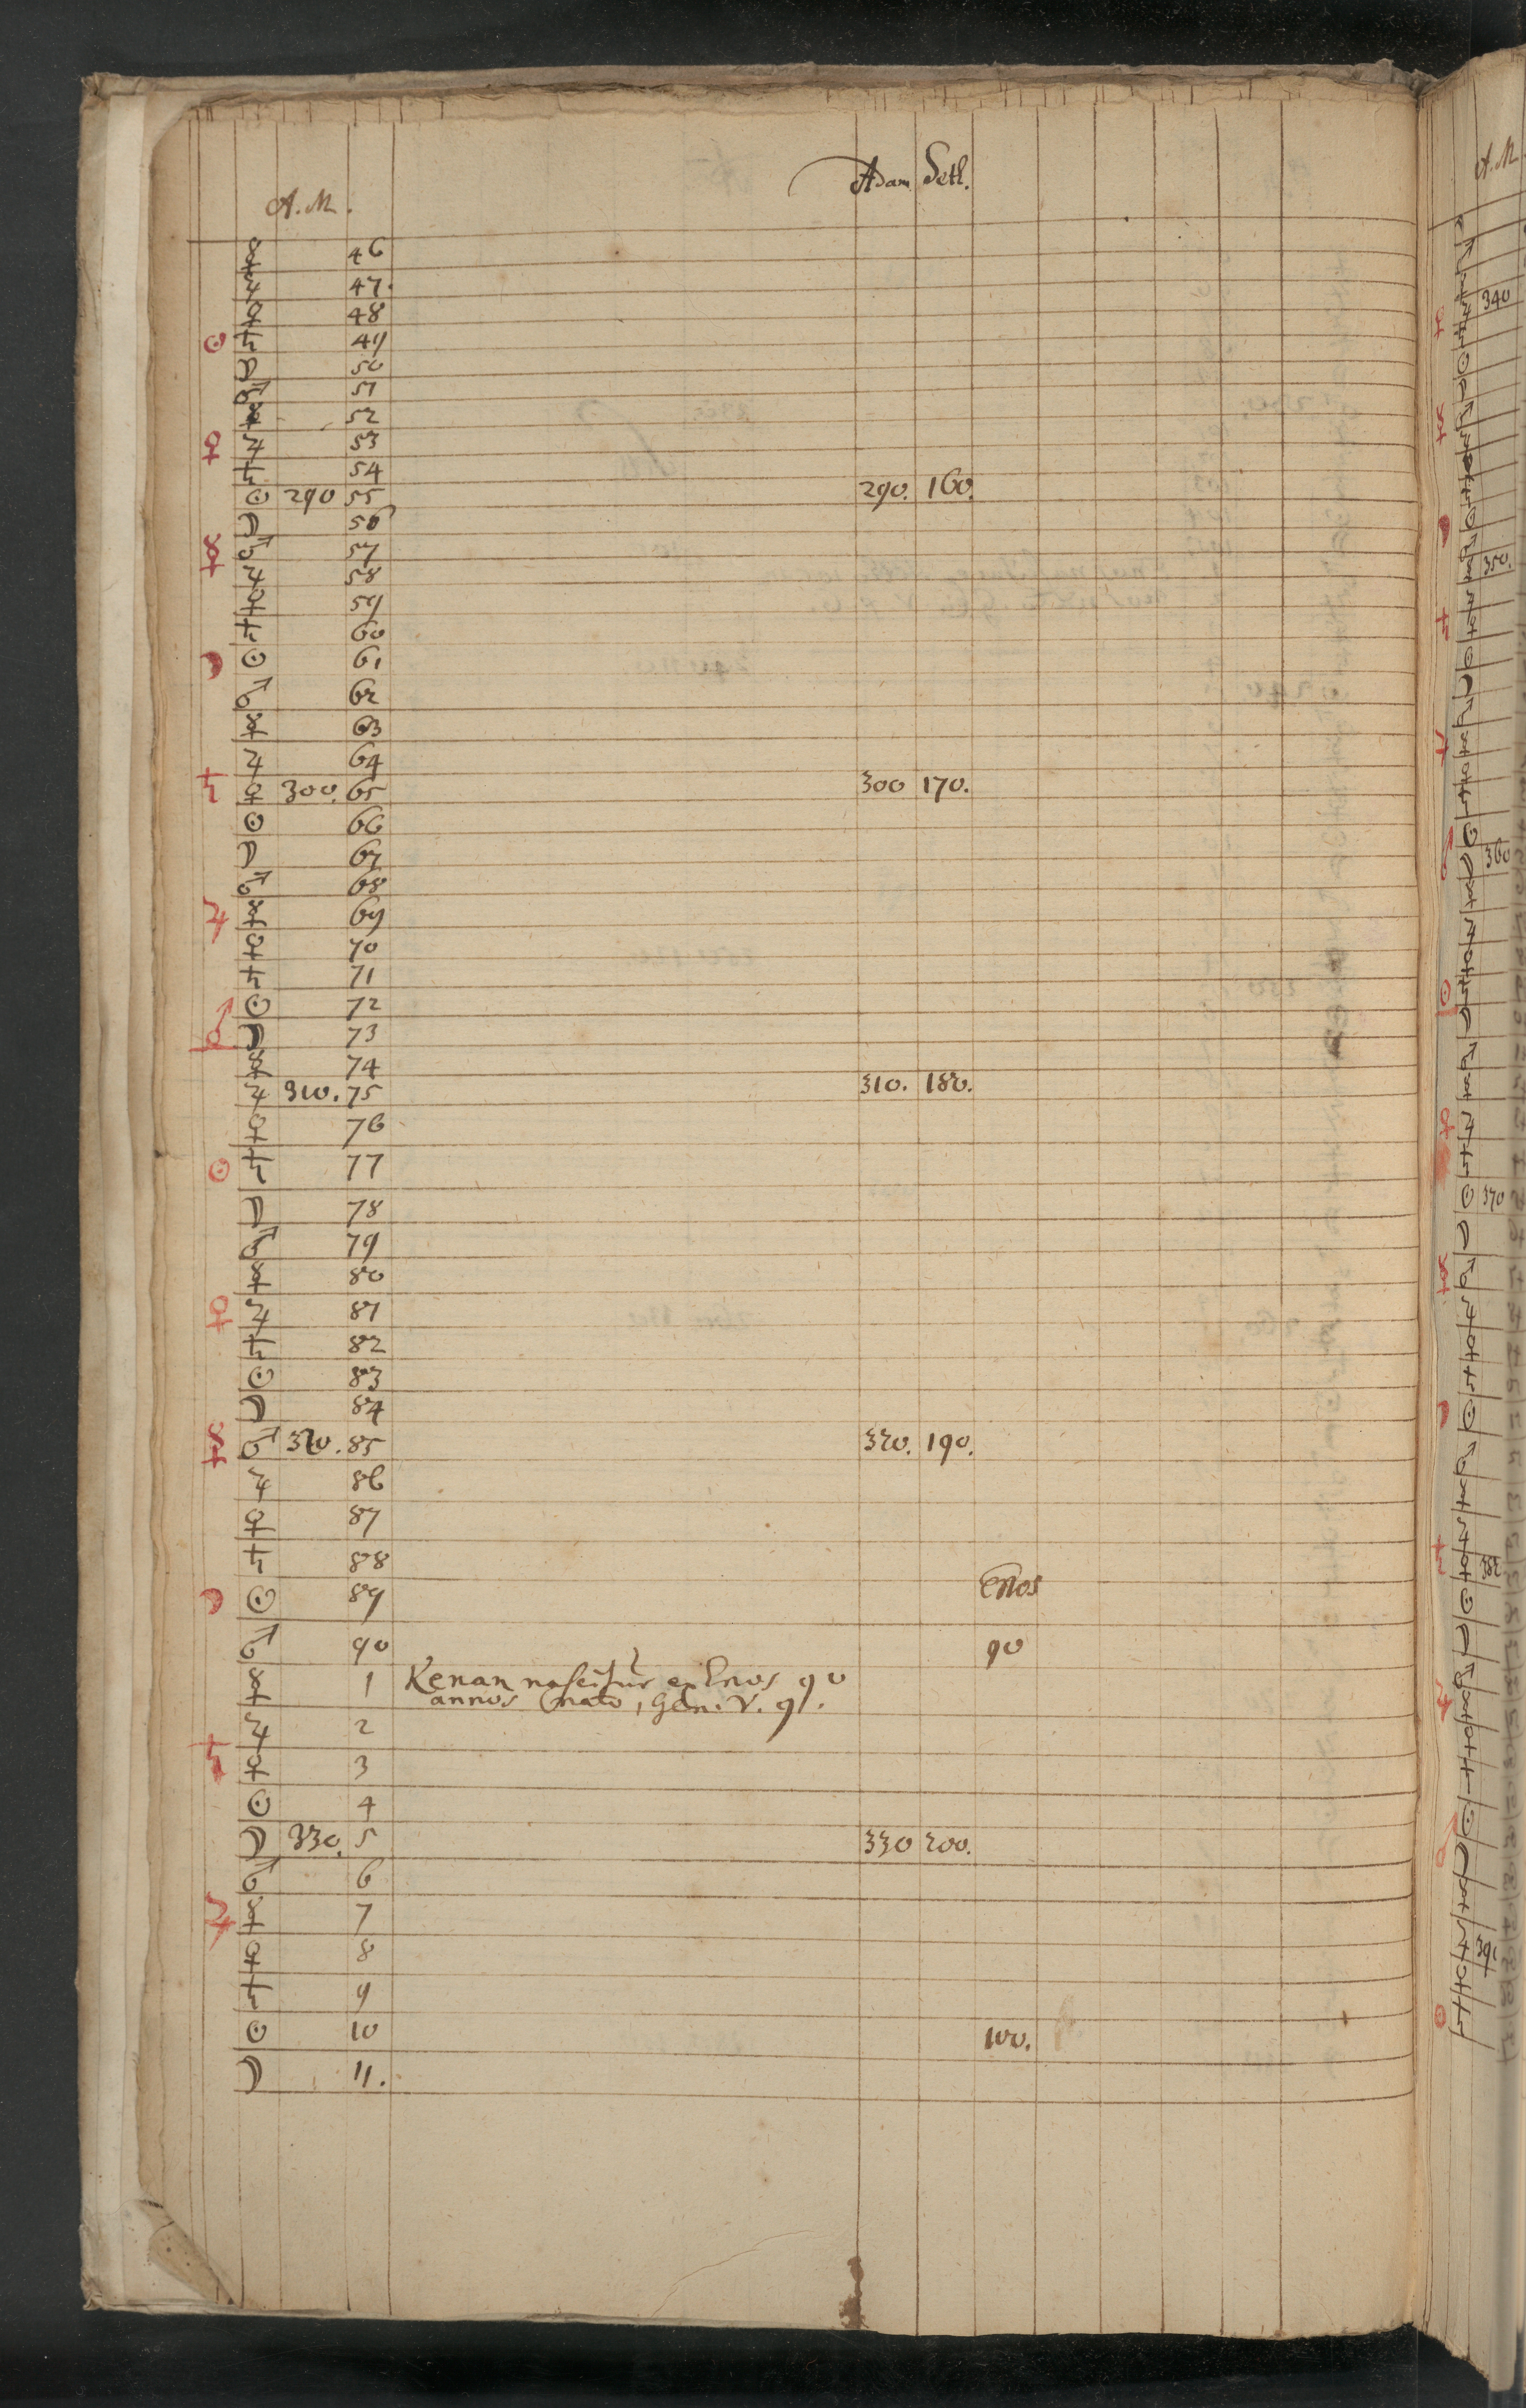 Adam Seth.
A. M.
☿ 46
♃ 47.
♀ 48
☉ ♄ 49
☽ 50
♂ 51
☿ 52
♀ ♃ 53
♄ 54
☉ 290 55 290. 160.
☽ 56
☿ ♂ 57
♃ 58
♀ 59
♄ 60
☽ ☉ 61
♂ 62
☿ 63
♃ 64
♄ ♀ 300. 65 300 170.
☉ 66
☽ 67
♂ 68
♃ ☿ 69
♀ 70
♄ 71
♂ ☉ 72
☽ 73
☿ 74
♃ 310. 75 310. 180.
♀ 76
☉ ♄ 77
☽ 78
♂ 79
☿ 80
♀ ♃ 81
♄ 82
☉ 83
☽ 84
☿ ♂ 320. 85 320. 190.
♃ 86
♀ 87
♄ 88
Enos
☽ ☉ 89
♂ 90 90
☿ 1 Kenan nascitur ex Enos 90
annos nato, Gen. V. 9.
♃ 2
♄ ♀ 3
☉ 4
☽ 330. 5 330 200.
♂ 6
♃ ☿ 7
♀ 8
♄ 9
☉ 10 100.
☽ 11.
A. M
340
350.
360
370